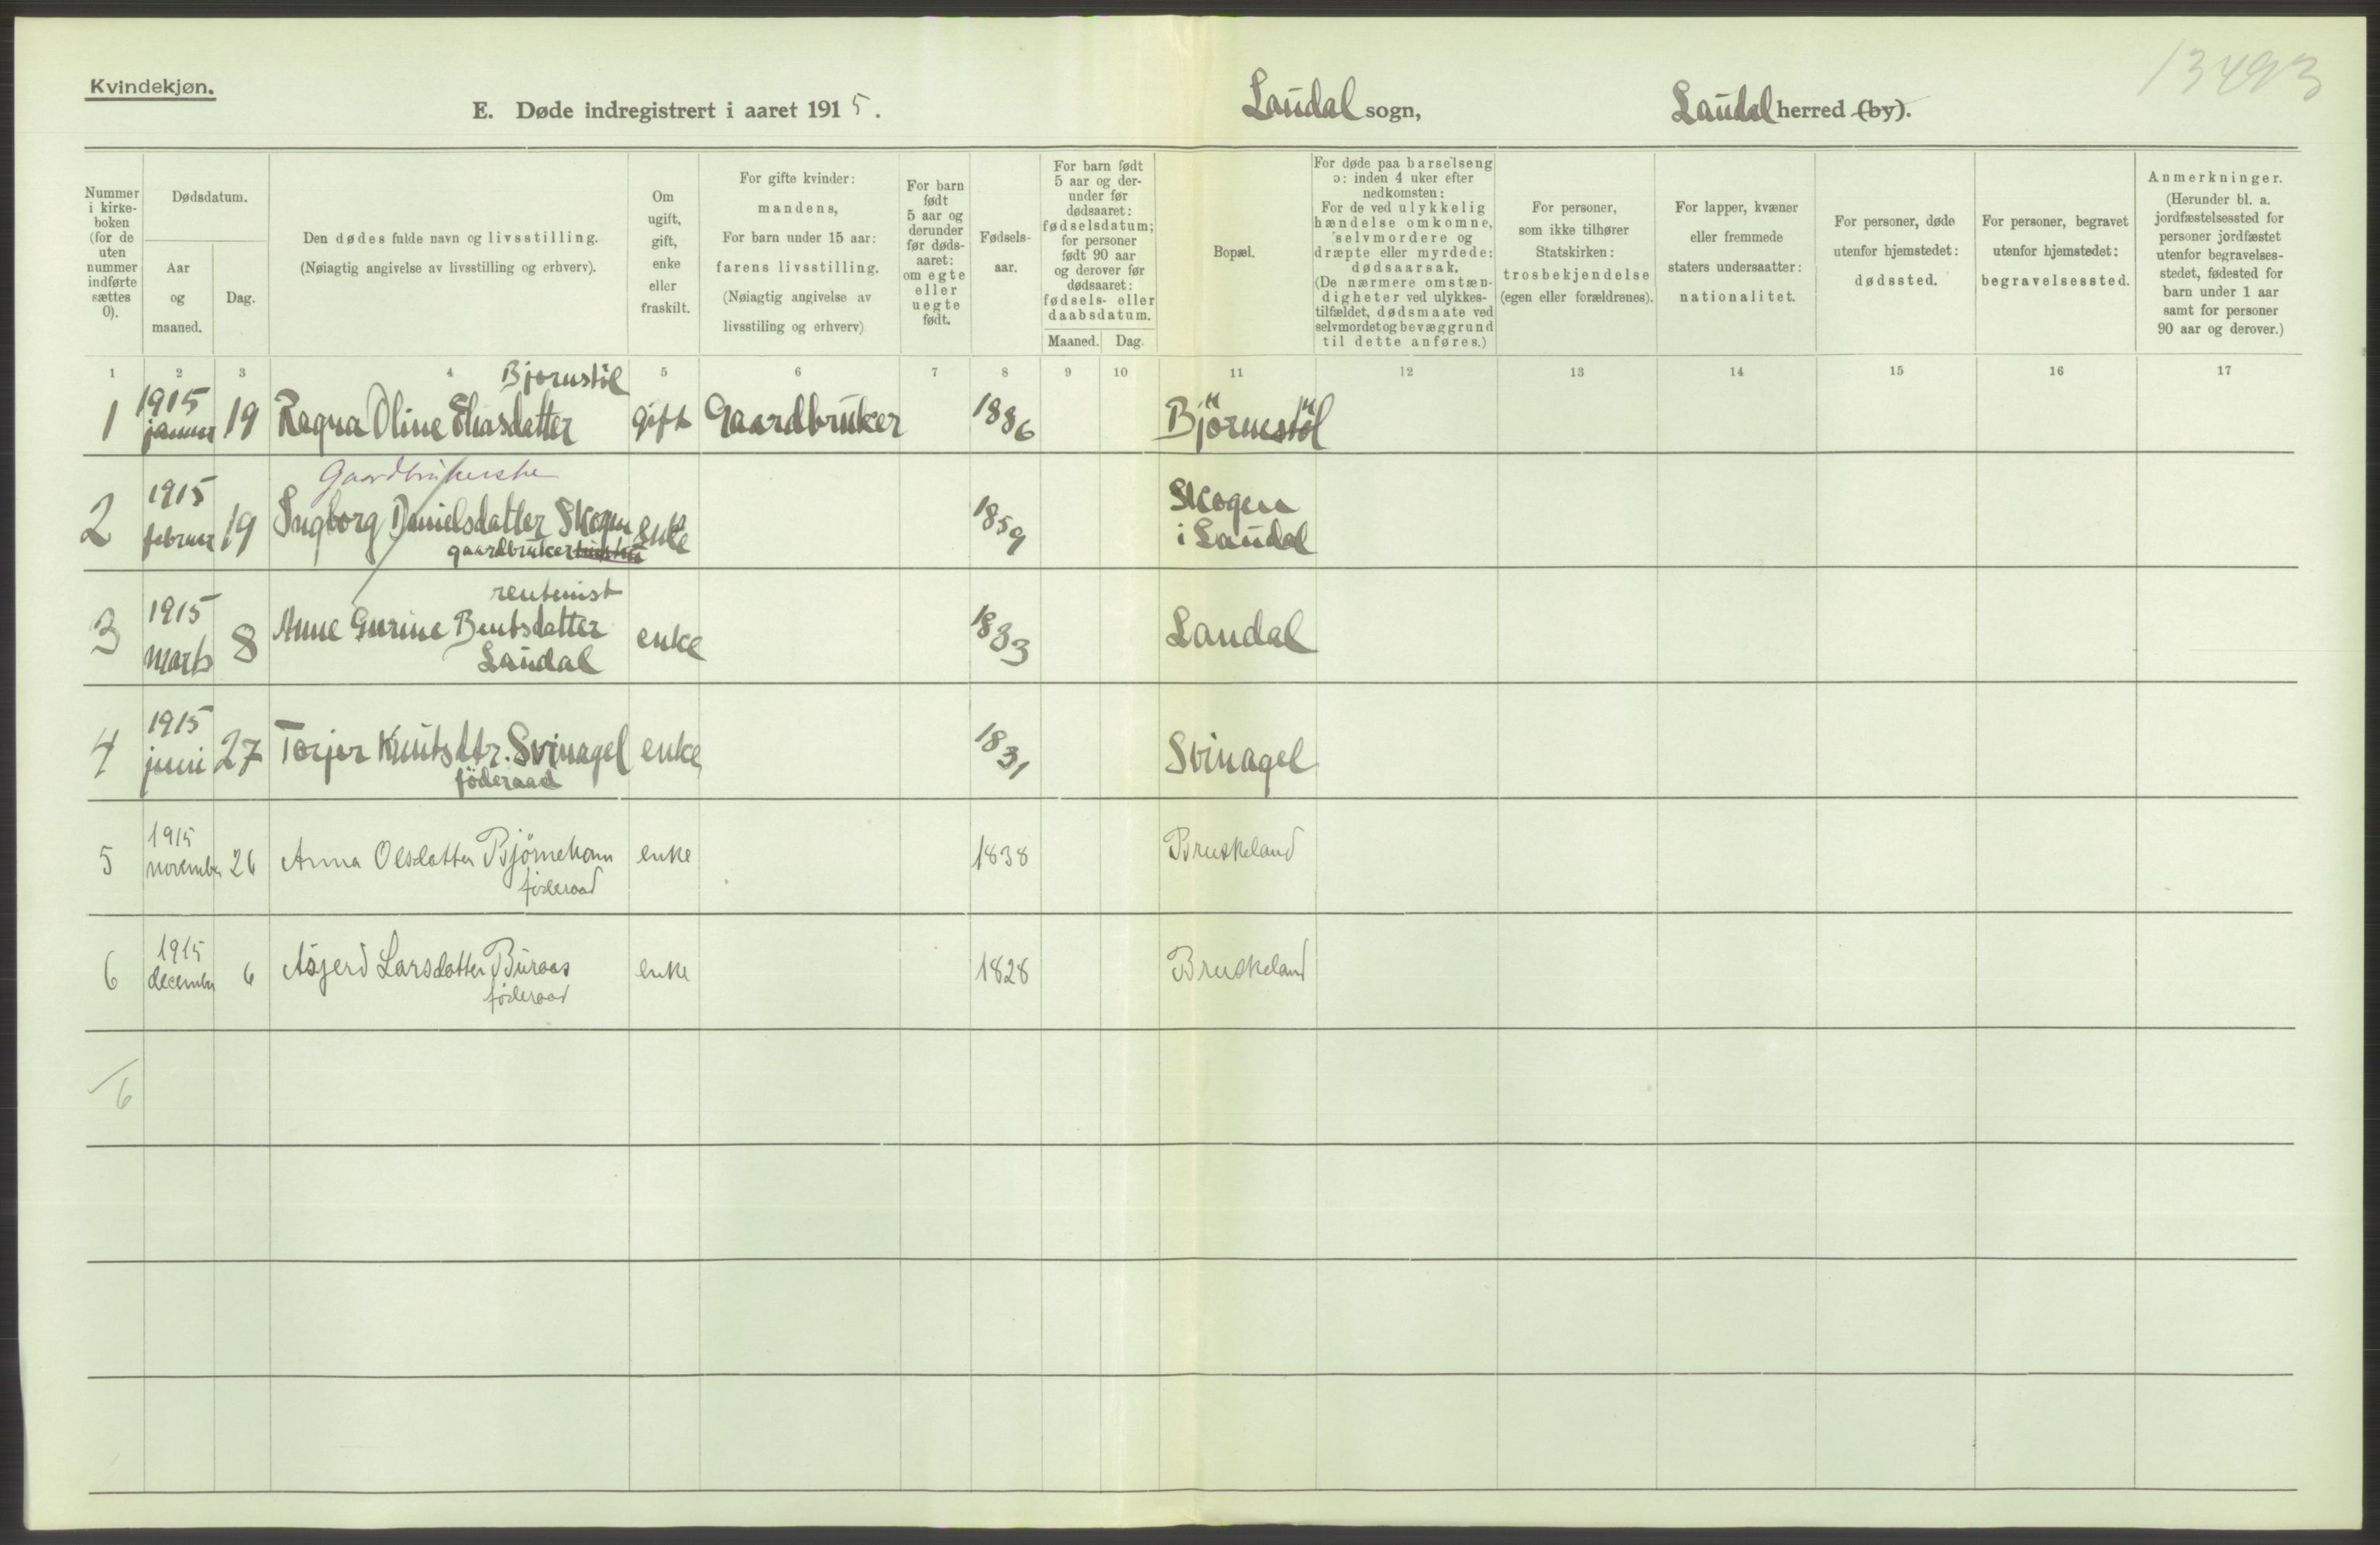 13493
Kvindekjøn.
E. Døde indregistrert i aaret 1915. Laudal sogn, Laudal herred (by).
Nummer i kirkeboken (for de uten nummer indførte sættes 0).
Dødsdatum.
Aar og maaned.
Dag.
Den dødes fulde navn og livsstilling.
(Nøiagtig angivelse av livsstilling og erhverv).
Om ugift, gift, enke eller fraskilt.
For gifte kvinder:
mandens,
For barn under 15 aar:
farens livsstilling.
(Nøiagtig angivelse av
livsstiling og erhverv)
For barn
født
5 aar og
derunder
før døds-
aaret:
om egte
eller
uegte
født.
Fødsels-
aar.
For barn født
5 aar og der-
under før
dødsaaret:
fødselsdatum;
for personer
født 90 aar
og derover før
dødsaaret:
fødsels- eller
daabsdatum.
Maaned. Dag.
Bopæl.
For døde paa barselseng
ɔ: inden 4 uker efter
nedkomsten:
For de ved ulykkelig
hændelse omkomne,
selvmordere og
dræpte eller myrdede:
dødsaarsak.
(De nærmere omstæn-
digheter ved ulykkes-
tilfældet, dødsmaate ved
selvmordet og bevæggrund
til dette anføres.)
For personer,
som ikke tilhører
Statskirken:
trosbekjendelse
(egen eller forældrenes).
For lapper, kvæner
eller fremmede
staters undersaatter:
nationalitet.
For personer, døde
utenfor hjemstedet:
dødssted.
For personer, begravet
utenfor hjemstedet:
begravelsessted.
Anmerkninger.
(Herunder bl. a.
jordfæstelsessted for
personer jordfæstet
utenfor begravelses-
stedet, fødested for
barn under 1 aar
samt for personer
90 aar og derover.)
1 2 3 4 5 6 7 8 9 10 11 12 13 14 15 16 17
Bjørnstøl
1 1915 januar 19 Ragna Oline Eliasdatter gift Gaardbruker 1886 Bjørnestøl
Gaardbrukerske
2 1915 februar 19 Ingborg Danielsdatter Skogen enke 1859 Skogen
gaardbruker i Laudal
rentenist
3 1915 marts 8 Anne Gurine Bentsdatter enke 1833 Laudal
Laudal
4 1915 juni 27 Torjer Knutsdtr. Svinagel enke 1831 Svinagel
föderaad
5 1915 november 26 Anna Olsdatter Bjørnehom enke 1838 Bruskeland
föderaad
6 1915 december 6 Åsjerd Larsdatter Buraas enke 1828 Bruskeland
föderaad
6